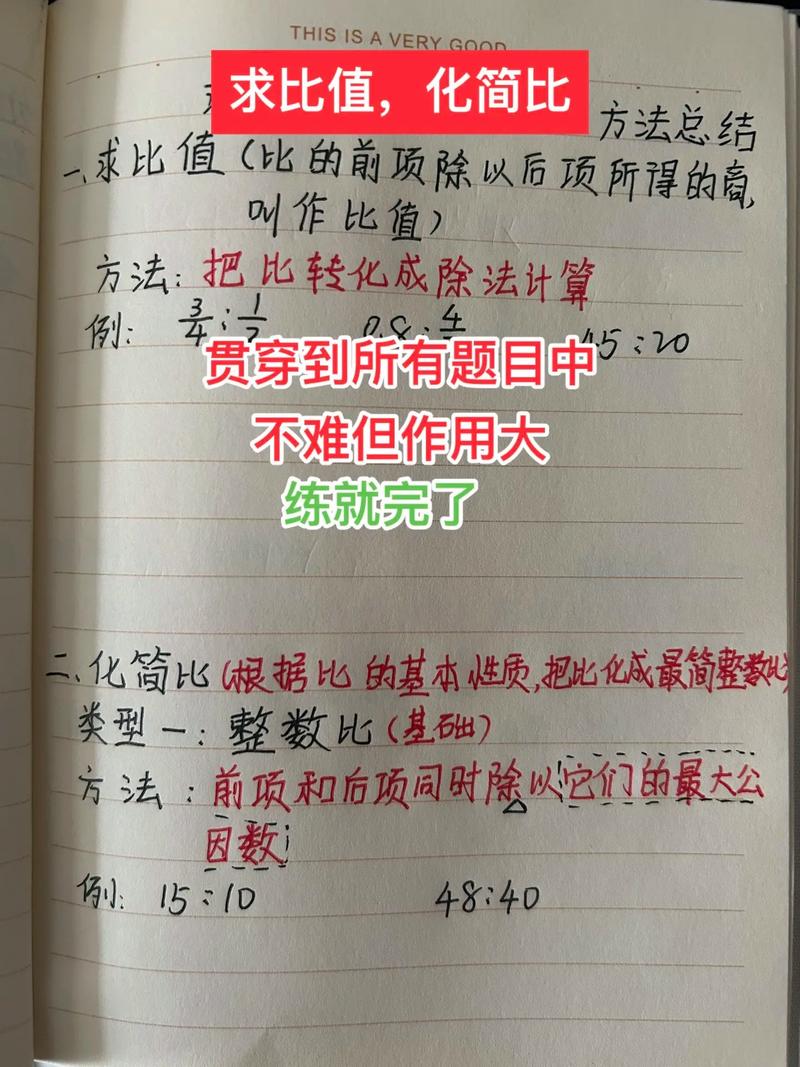 THIS IS A VERY GOOD
求比值，化简比
方法总结
一、求比值(比的前项除以后项所得的商,
叫作比值)
方法：把比转化成除法计算
例： 3/4 : 1/ : 5 : 20
贯穿到所有题目中
不难但作用大
练就完了
二、化简比(根据比的基本性质,把比化成最简整数比)
类型一：整数比(基础)
方法：前项和后项同时除以它们的最大公
因数
例：15:10 48:40